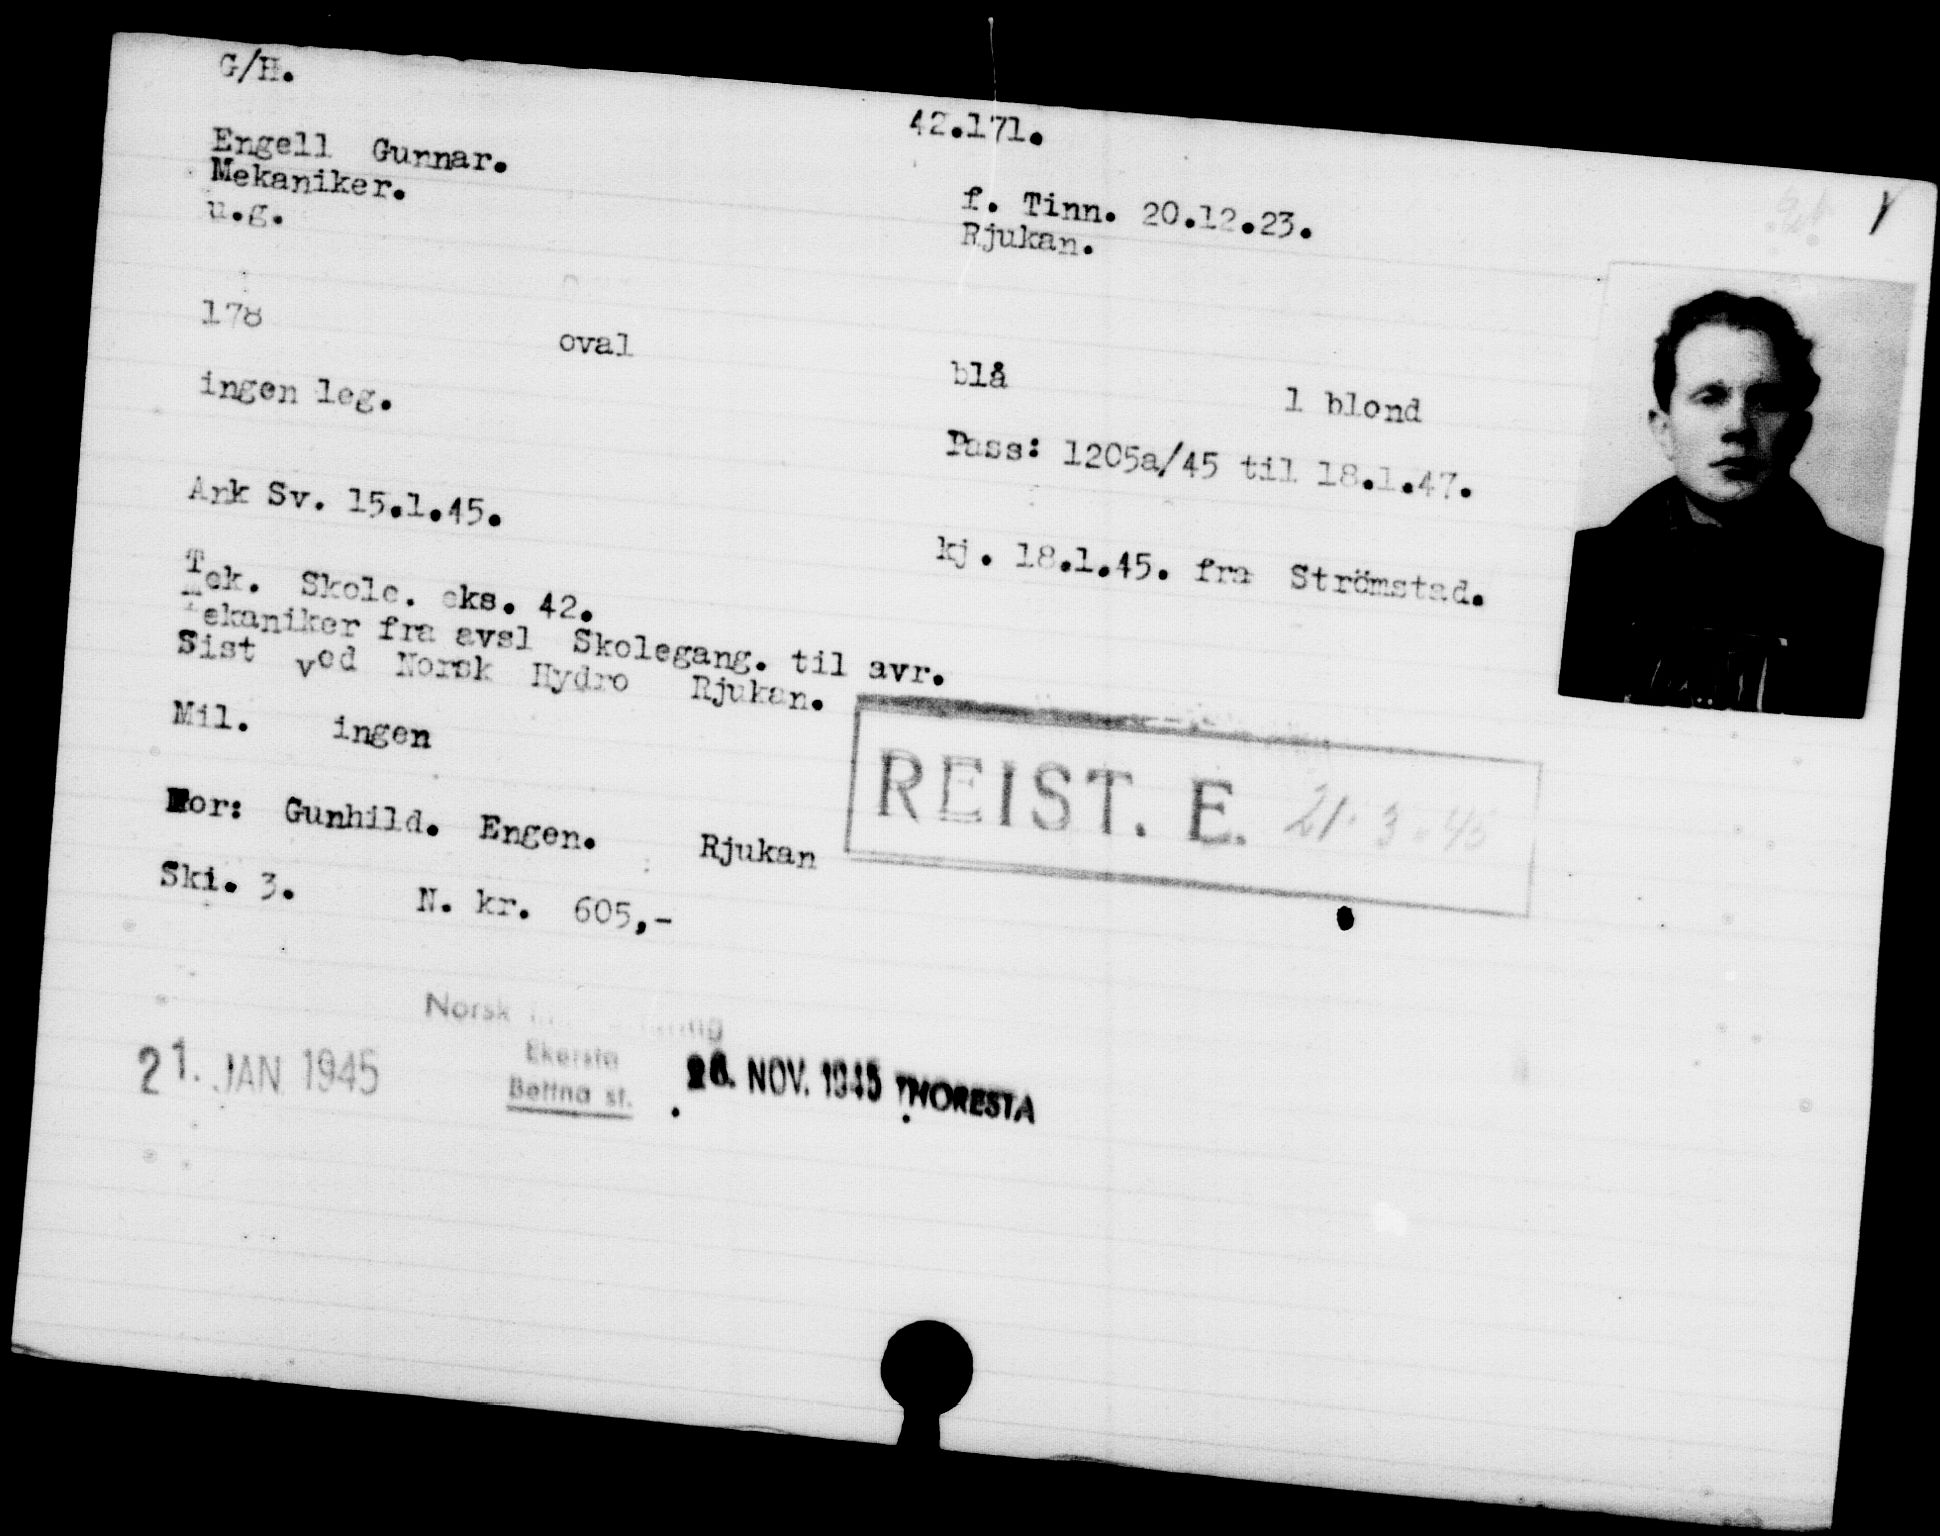 G/H.
42.171.
Engell Gunnar.
Mekaniker.
u.g.
f. Tinn. 20.12.23.
Rjukan.
178
oval
blå
l blond
ingen leg.
Pass: 1205a/45 til 18.1.47.
Ank Sv. 15.1.45.
kj. 18.1.45. fra Strömstad.
Tek. Skole. eks. 42.
Mekaniker fra avsl Skolegang. til avr.
Sist ved Norsk Hydro Rjukan.
Mil. ingen
REIST. E. 21.3.45
Mor: Gunhild. Engen. Rjukan
Ski. 3. N. kr. 605,-
Norsk
21. JAN 1945
Bettna st.
NOV. 1945 THORESTA